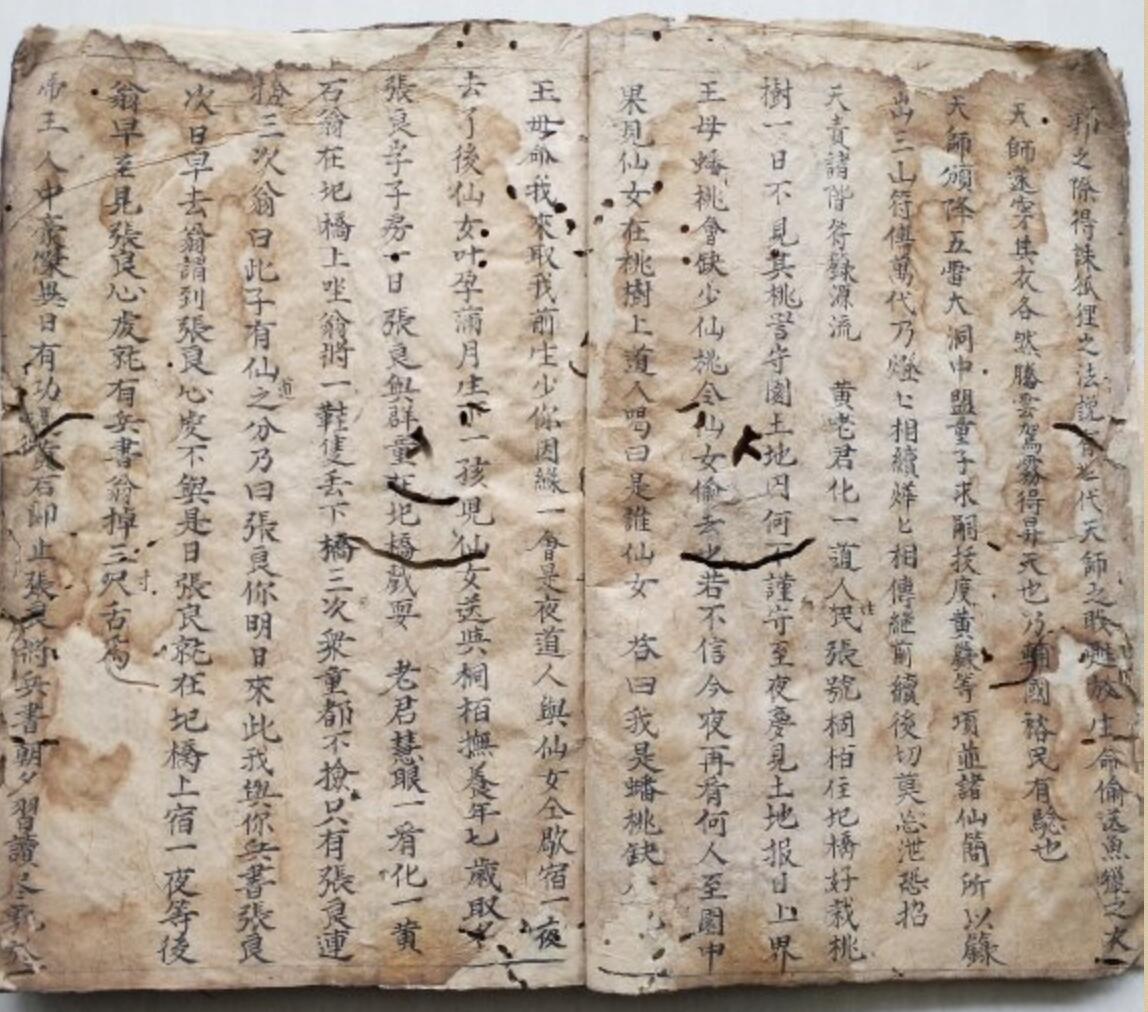 之際得誅狐狸之法說
天師遂穿其衣各然騰雲駕霧得昇天也乃輔國裕民有驗也
天師頒降五雷大洞中盟童子求嗣技度黃籙等項並諸仙簡所以籙
三山符傳萬代乃燈〻相續燁〻相傳繼前續後切莫忘泄恐招
天責諸階符籙源流 黃老君化一道人民張號桐柏住圯橋好栽桃
樹一日不見其桃詈守園土地因何不謹守至夜慶見土地报曰上界
王母蟠桃會缺少仙桃令仙女偷去也若不信今夜再看何人至園中
果見仙女在桃樹上道人喝曰是誰仙女 答曰我是蟠桃缺
王母命我來取我前生少你因緣一會是夜道人與仙女仝歇宿一夜
去了後仙女叶孕蒲月生下一孩児仙女送與桐栢撫養年七歲取名
張良字子房一日張良與群童在圯橋戲耍 老君慧眼一看化一黃
石翁在圯橋上坐翁將一鞋隻丢下橋三次衆童都不撿只有張良連
撿三次翁曰此子有仙道之分乃曰張良你明日來此我與你兵書張良
次日早去翁謂到張良心虔不與是日張良就在圯橋上宿一夜等後
翁早至見張良心虔就有兵書翁掉三寸尺舌為
帝王人中豪傑異日有功 石即止張良將兵書朝夕習讀